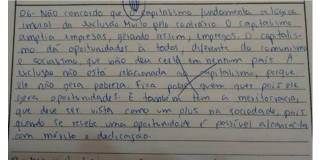 06- Não concordo que o capitalismo fundamenta a lógica
anual da exclusão. Muito pelo contrário. O capitalismo
amplia empresas, gerando assim, empregos. O capitalis-
mo dá oportunidades à todos, diferente do comunismo
e socialismo, que não deu certo em nenhum país. A
exclusão não está relacionada ao capitalismo, porque
ele não gera pobreza. Fica pobre quem quer pois ele
gera oportunidades. E também tem a meritocracia,
que deve ser vista como um plus na sociedade, pois
quando se recebe uma oportunidade é possível alcançá-la
com mérito e dedicação.